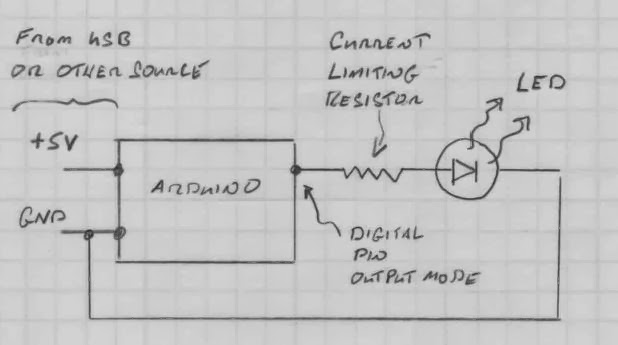 FROM USB
OR OTHER SOURCE
+5V
GND
ARDUINO
CURRENT
LIMITING
RESISTOR
LED
DIGITAL
PIN
OUTPUT MODE